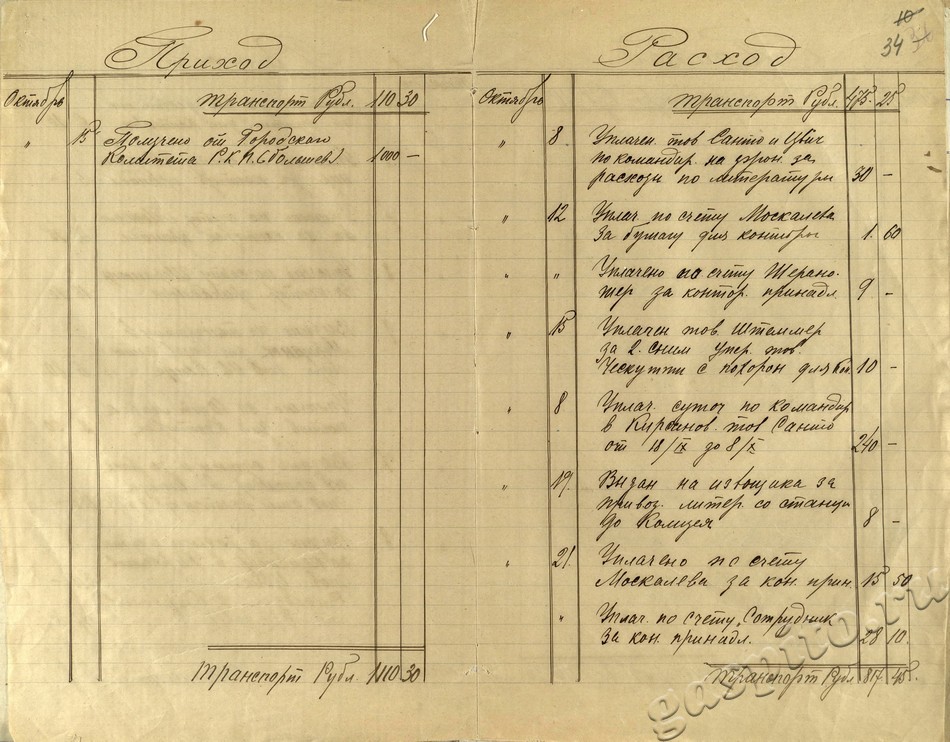 10
34 34
Приход
Октябрь Транспорт Рубл. 110 30
" 15 Получено от Городскаго
Комитета Р.К.П. (большев) 1000 —
Транспорт Рубл. 1110 30
Расход
Октябрь Транспорт Рубл. 475. 25
" 8. Уплачен. тов Санто и
по командир. на фрон. за
расходы по литературы 30 —
" 12 Уплач. по счету Москалева
за бумагу для конторы 1. 60
" " Уплачено по счету
за контор. принадл. 9 —
" 15 Уплачен тов. Штеммер
за 2. сним тов.
с похорон для 10 —
" 8 Уплач. суточ по командир
в Кирсанов. тов Санто
от 18/IX до 8/X 240 —
" 19. Выдан на извощика за
привоз. литер. со станци
до 8 —
" 21. Уплачено по счету
Москалева за кон. прин. 15 50
" Уплач. по счету „Сотрудник
за кон. принадл. 28 10.
Транспорт Рубл 817. 45.
gaspito.ru